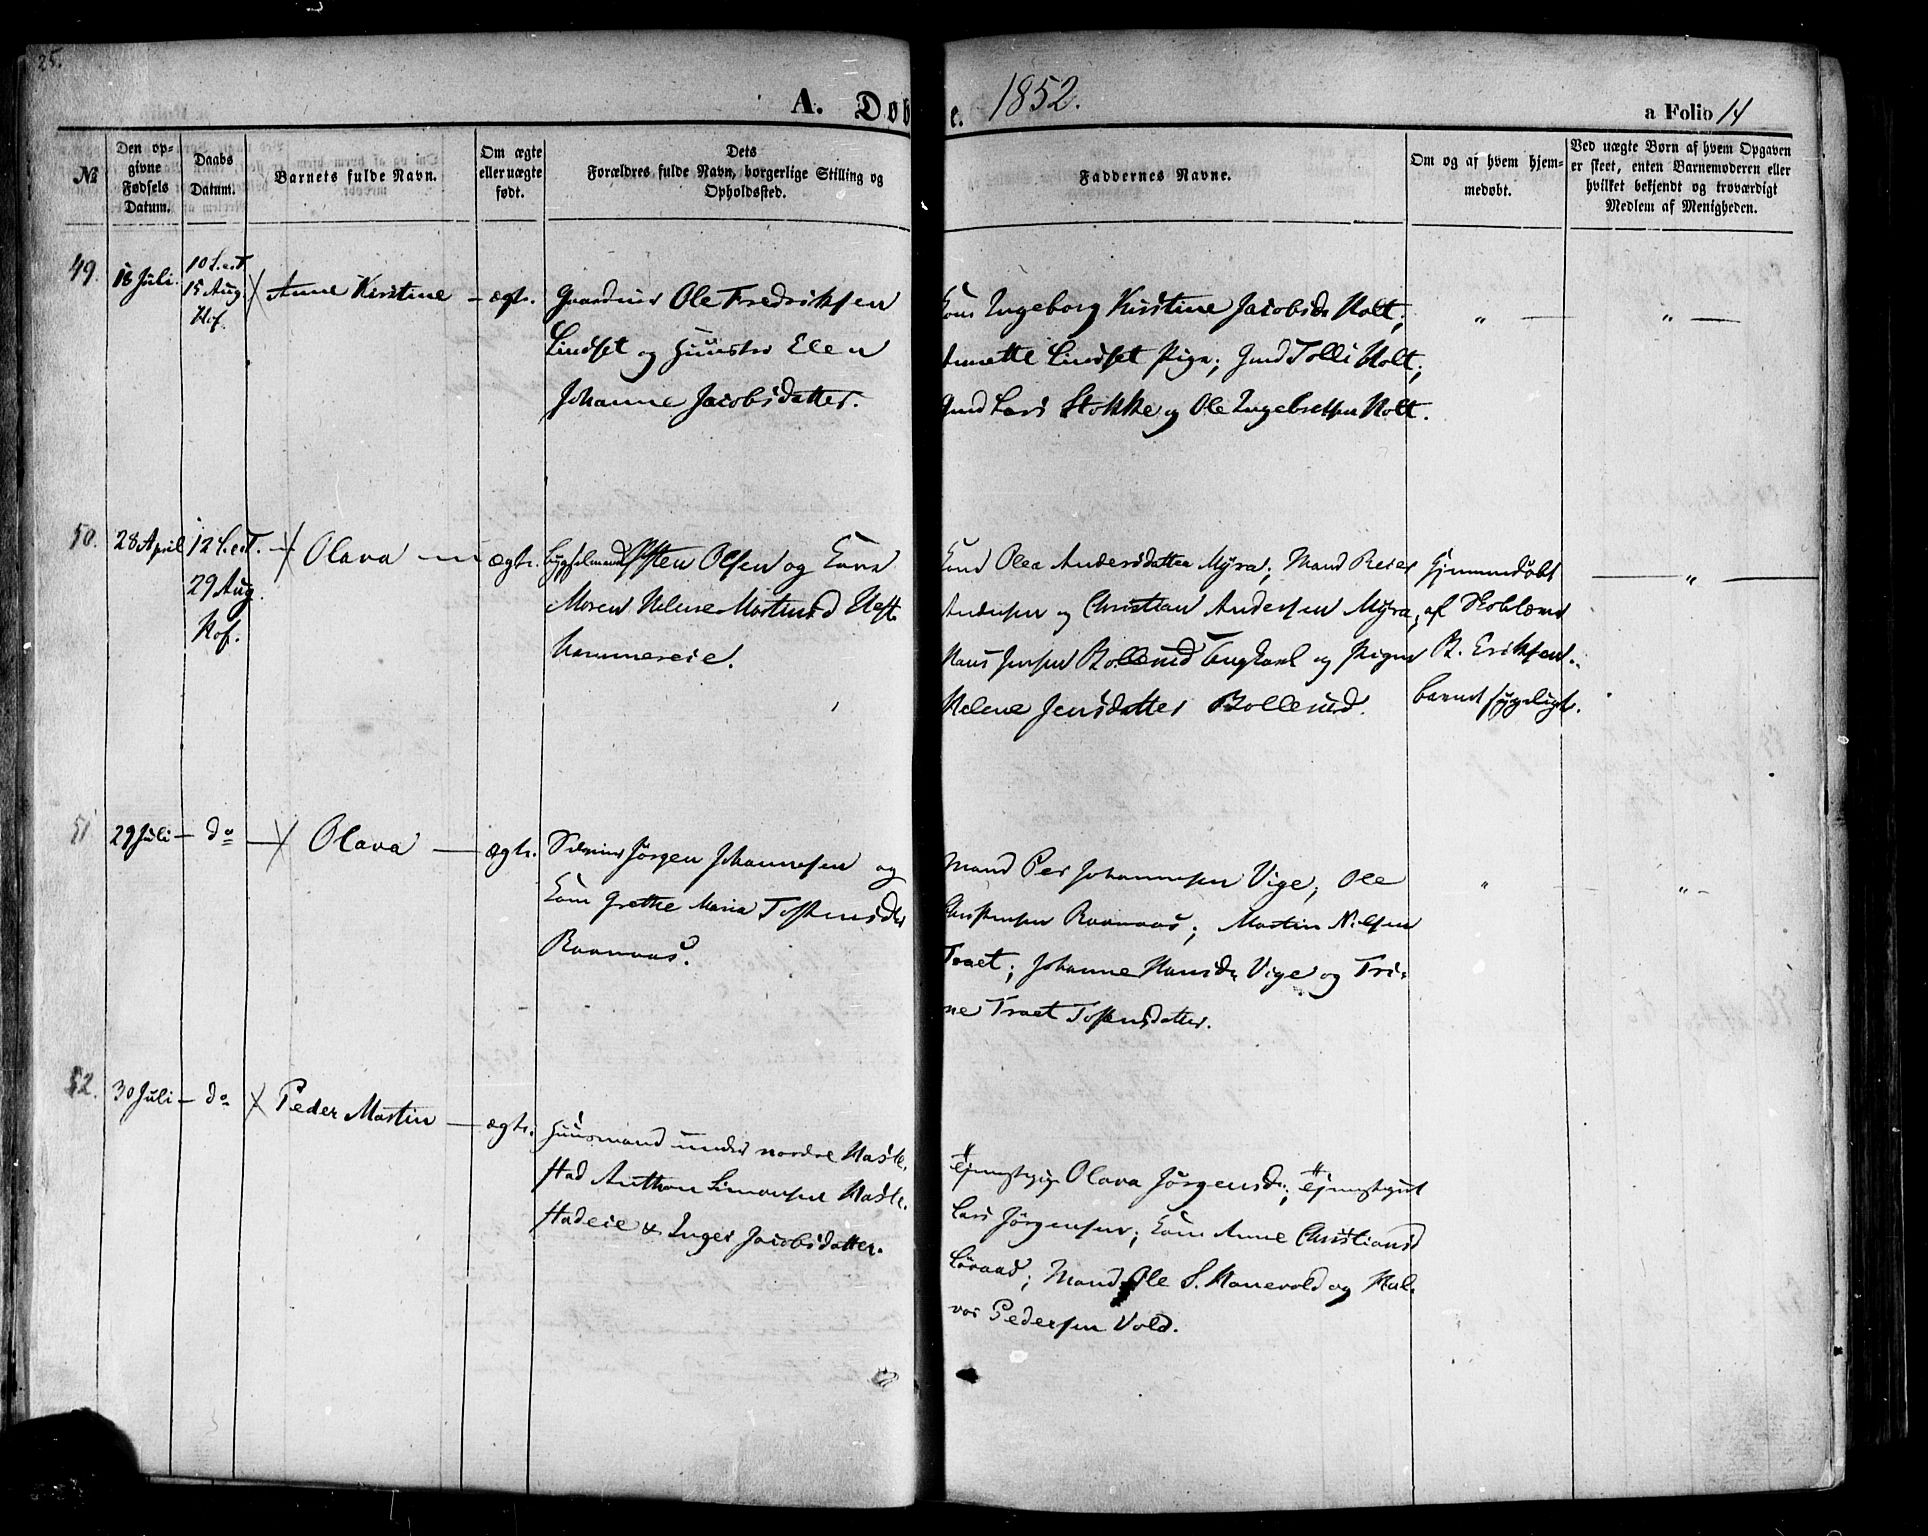 25.
A. Døb
e. 1852.
a Folio 14
№
Den op-
givne
Fødsels
Datum.
Daabs
Datum.
Barnets fulde Navn.
Om ægte
eller uægte
født.
Dets
Forældres fulde Navn, borgerlige Stilling og
Opholdssted.
Faddernes Navne.
Om og af hvem hjem-
medøbt.
Ved uægte Børn af hvem Opgaven
er skeet, enten Barnemoderen eller
hvilket bekjendt og troværdigt
Medlem af Menigheden.
49. 18 Juli.
15 Aug.
Hof.
Anne Kirstine — ægte.
Ole Fredriksen
Lindset og Huustro Elen
Johanne Jacobsdatter.
Kone Ingeborg Kirstine Jacobsdr Holt;
Lindset Pige; Gmd Tolli Holt;
Gmd Lars Stokke og Ole Ingebretsen Holt.
" — " —
50. 28 April 12 S.e.T. — Olava — ægte.
29 Aug.
Hof.
Bygselmand Osten Olsen og Kone
Maren Helene Martinsd
hammereie.
Kone Olea Andersdatter Myra; Mand Reier
Andersen og Christian Andersen Myra;
Hans Jensen Bollerud Ungkarl og Pigen
Helene Jensdatter Bollerud.
Hjemmedøbt
af Skolelærer
B. Eriksen.
barnet sygeligt.
— " —
51 29 Juli — do — Olava — ægte.
Jørgen Johannesen og
Kone Grethe Maria Tostensdtr
Raanaas.
Mand Per Johannesen Vige; Ole
Christensen Raanaas; Martin Nilsen
Traet; Johanne Hansdr Vige og Tri-
ne Traet Tostensdatter.
" — " —
52. 30 Juli — do Peder Martin — ægte.
Huusmand under nordre Hasle-
stad Anthon Simonsen Hasle-
stadeie & Inger Jacobsdatter.
Tjenestpige Olava Jørgensdr; Tjenestgut
Lars Jørgensen; Kone Anne Christiansd
Løvaas; Mand Ole S. Hanevold og Hal-
vor Pedersen Vold.